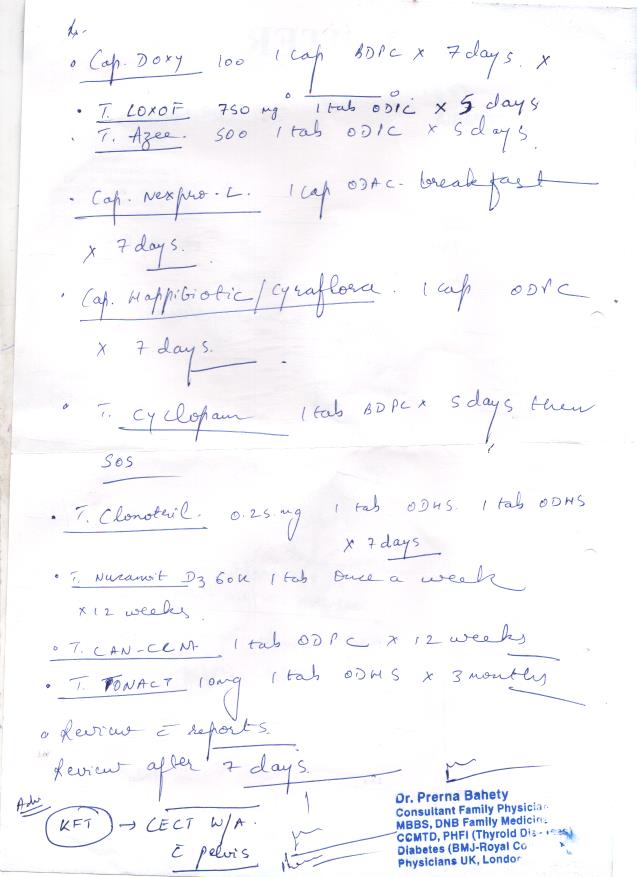 Rx.
• Cap. Doxy 100 1 cap BDPC x 7 days. x
• T. LOXOF 750 mg 1 tab ODPC x 5 days
• T. Azee. 500 1 tab ODPC x 5 days.
• Cap. Nexpro-L. 1 cap ODAC- breakfast
x 7 days.
• Cap. Happibiotic/Cyraflora. 1 cap ODPC
x 7 days.
• T. Cyclopam 1 tab BDPC x 5 days then
SOS
• T. Clonotril. 0.25 mg 1 tab ODHS. 1 tab ODHS
x 7 days
• T. D3 60K 1 tab Once a week
x 12 weeks.
• T. CAN- 1 tab ODPC x 12 weeks
• T. TONACT 10mg 1 tab ODHS x 3 months
• Review c̄ reports.
Review after 7 days.
Adv
KFT → CECT W/A.
c̄ pelvis
Dr. Prerna Bahety
Consultant Family Physician
MBBS, DNB Family Medicine
CCMTD, PHFI (Thyroid
Diabetes (BMJ-Royal Co
Physicians UK, London